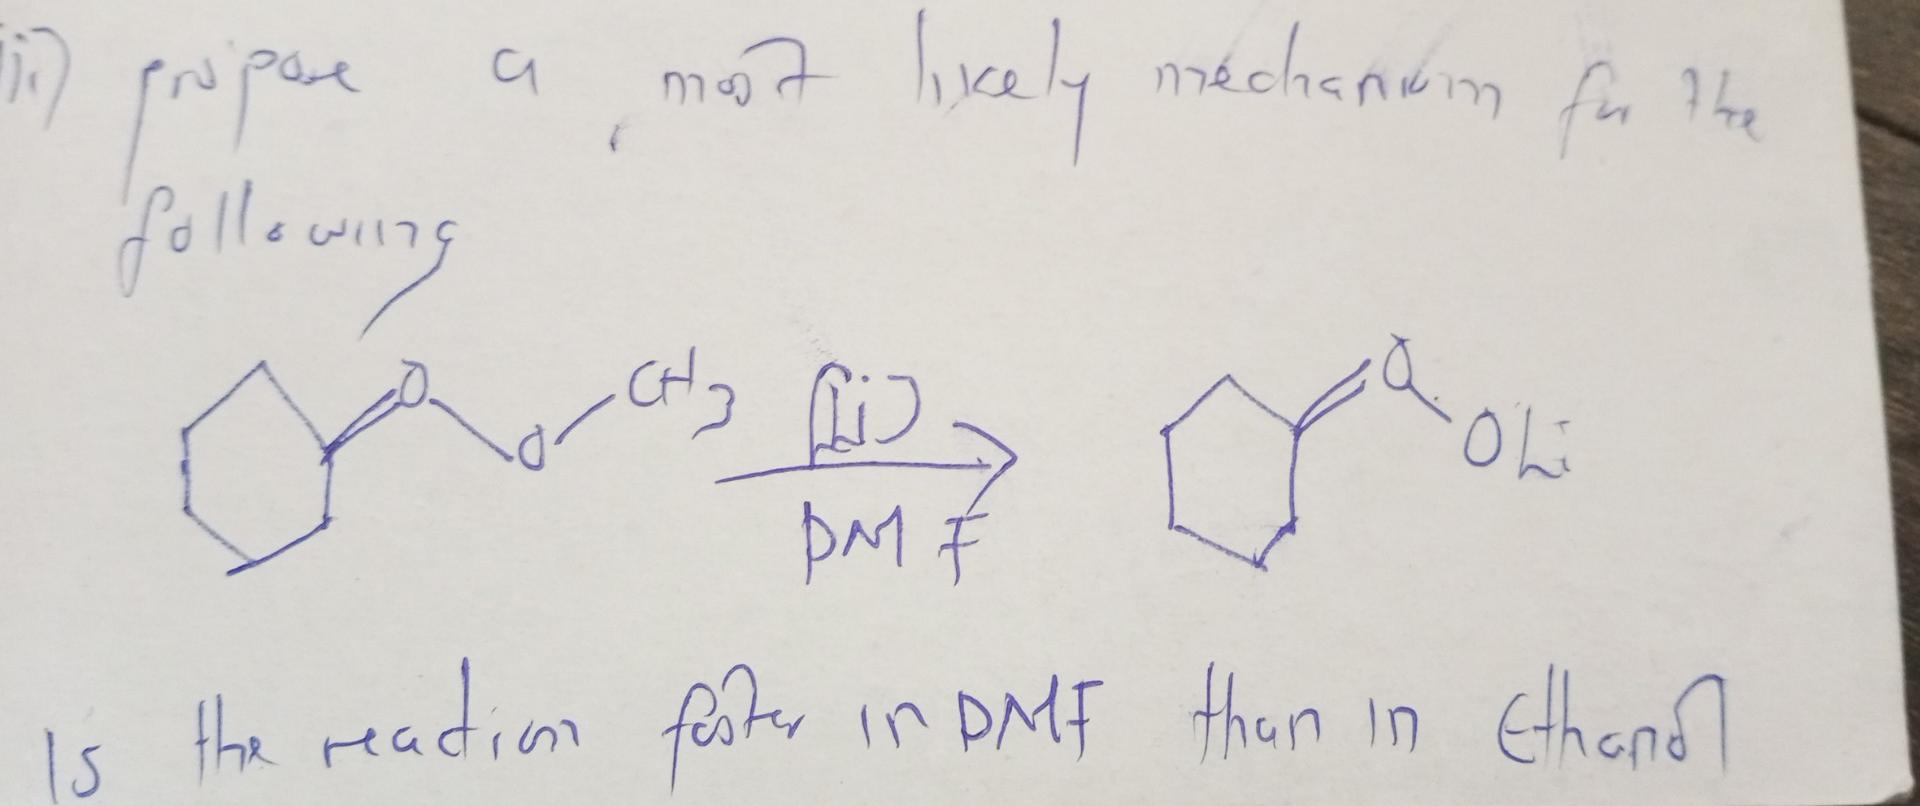 ii) propose a most likely mechanism for the
following
O
O
CH3
[Li]
DMF
O
OLi
Is the reaction faster in DMF than in Ethanol